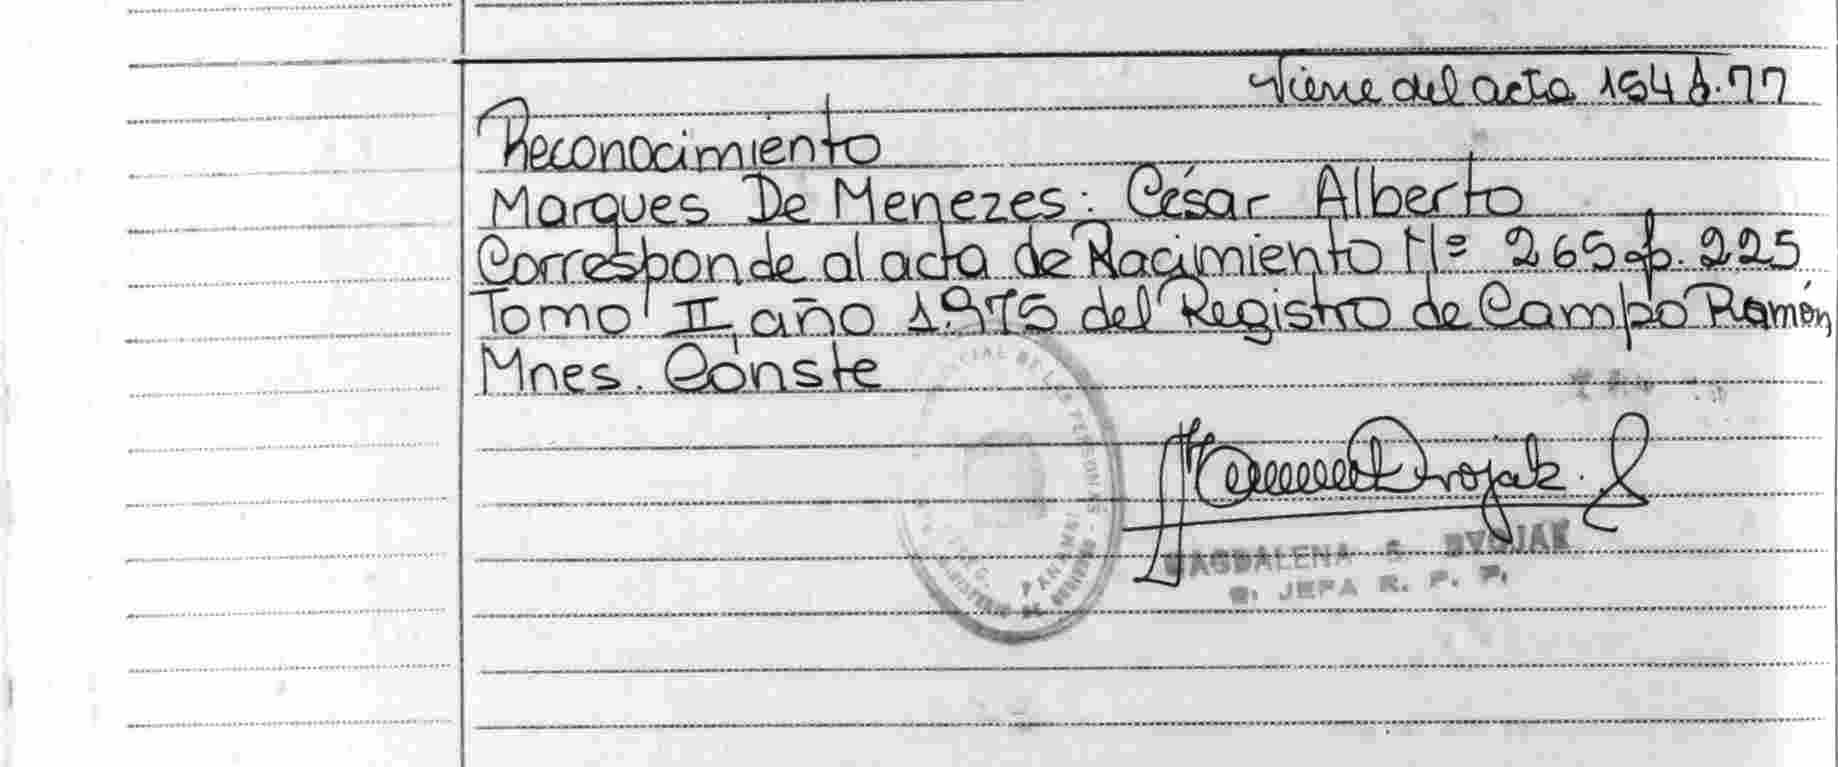 Viene del acta 154 f. 77
Reconocimiento
Marques De Menezes: César Alberto
Corresponde al acta de Nacimiento Nº 265 f. 225
Tomo II, año 1.975 del Registro de Campo Ramón,
Mnes. Conste
CIAL DE LAS PERSONAS
PANAMBI
MAGDALENA S. DYOJAK
JEFA R. P. P.